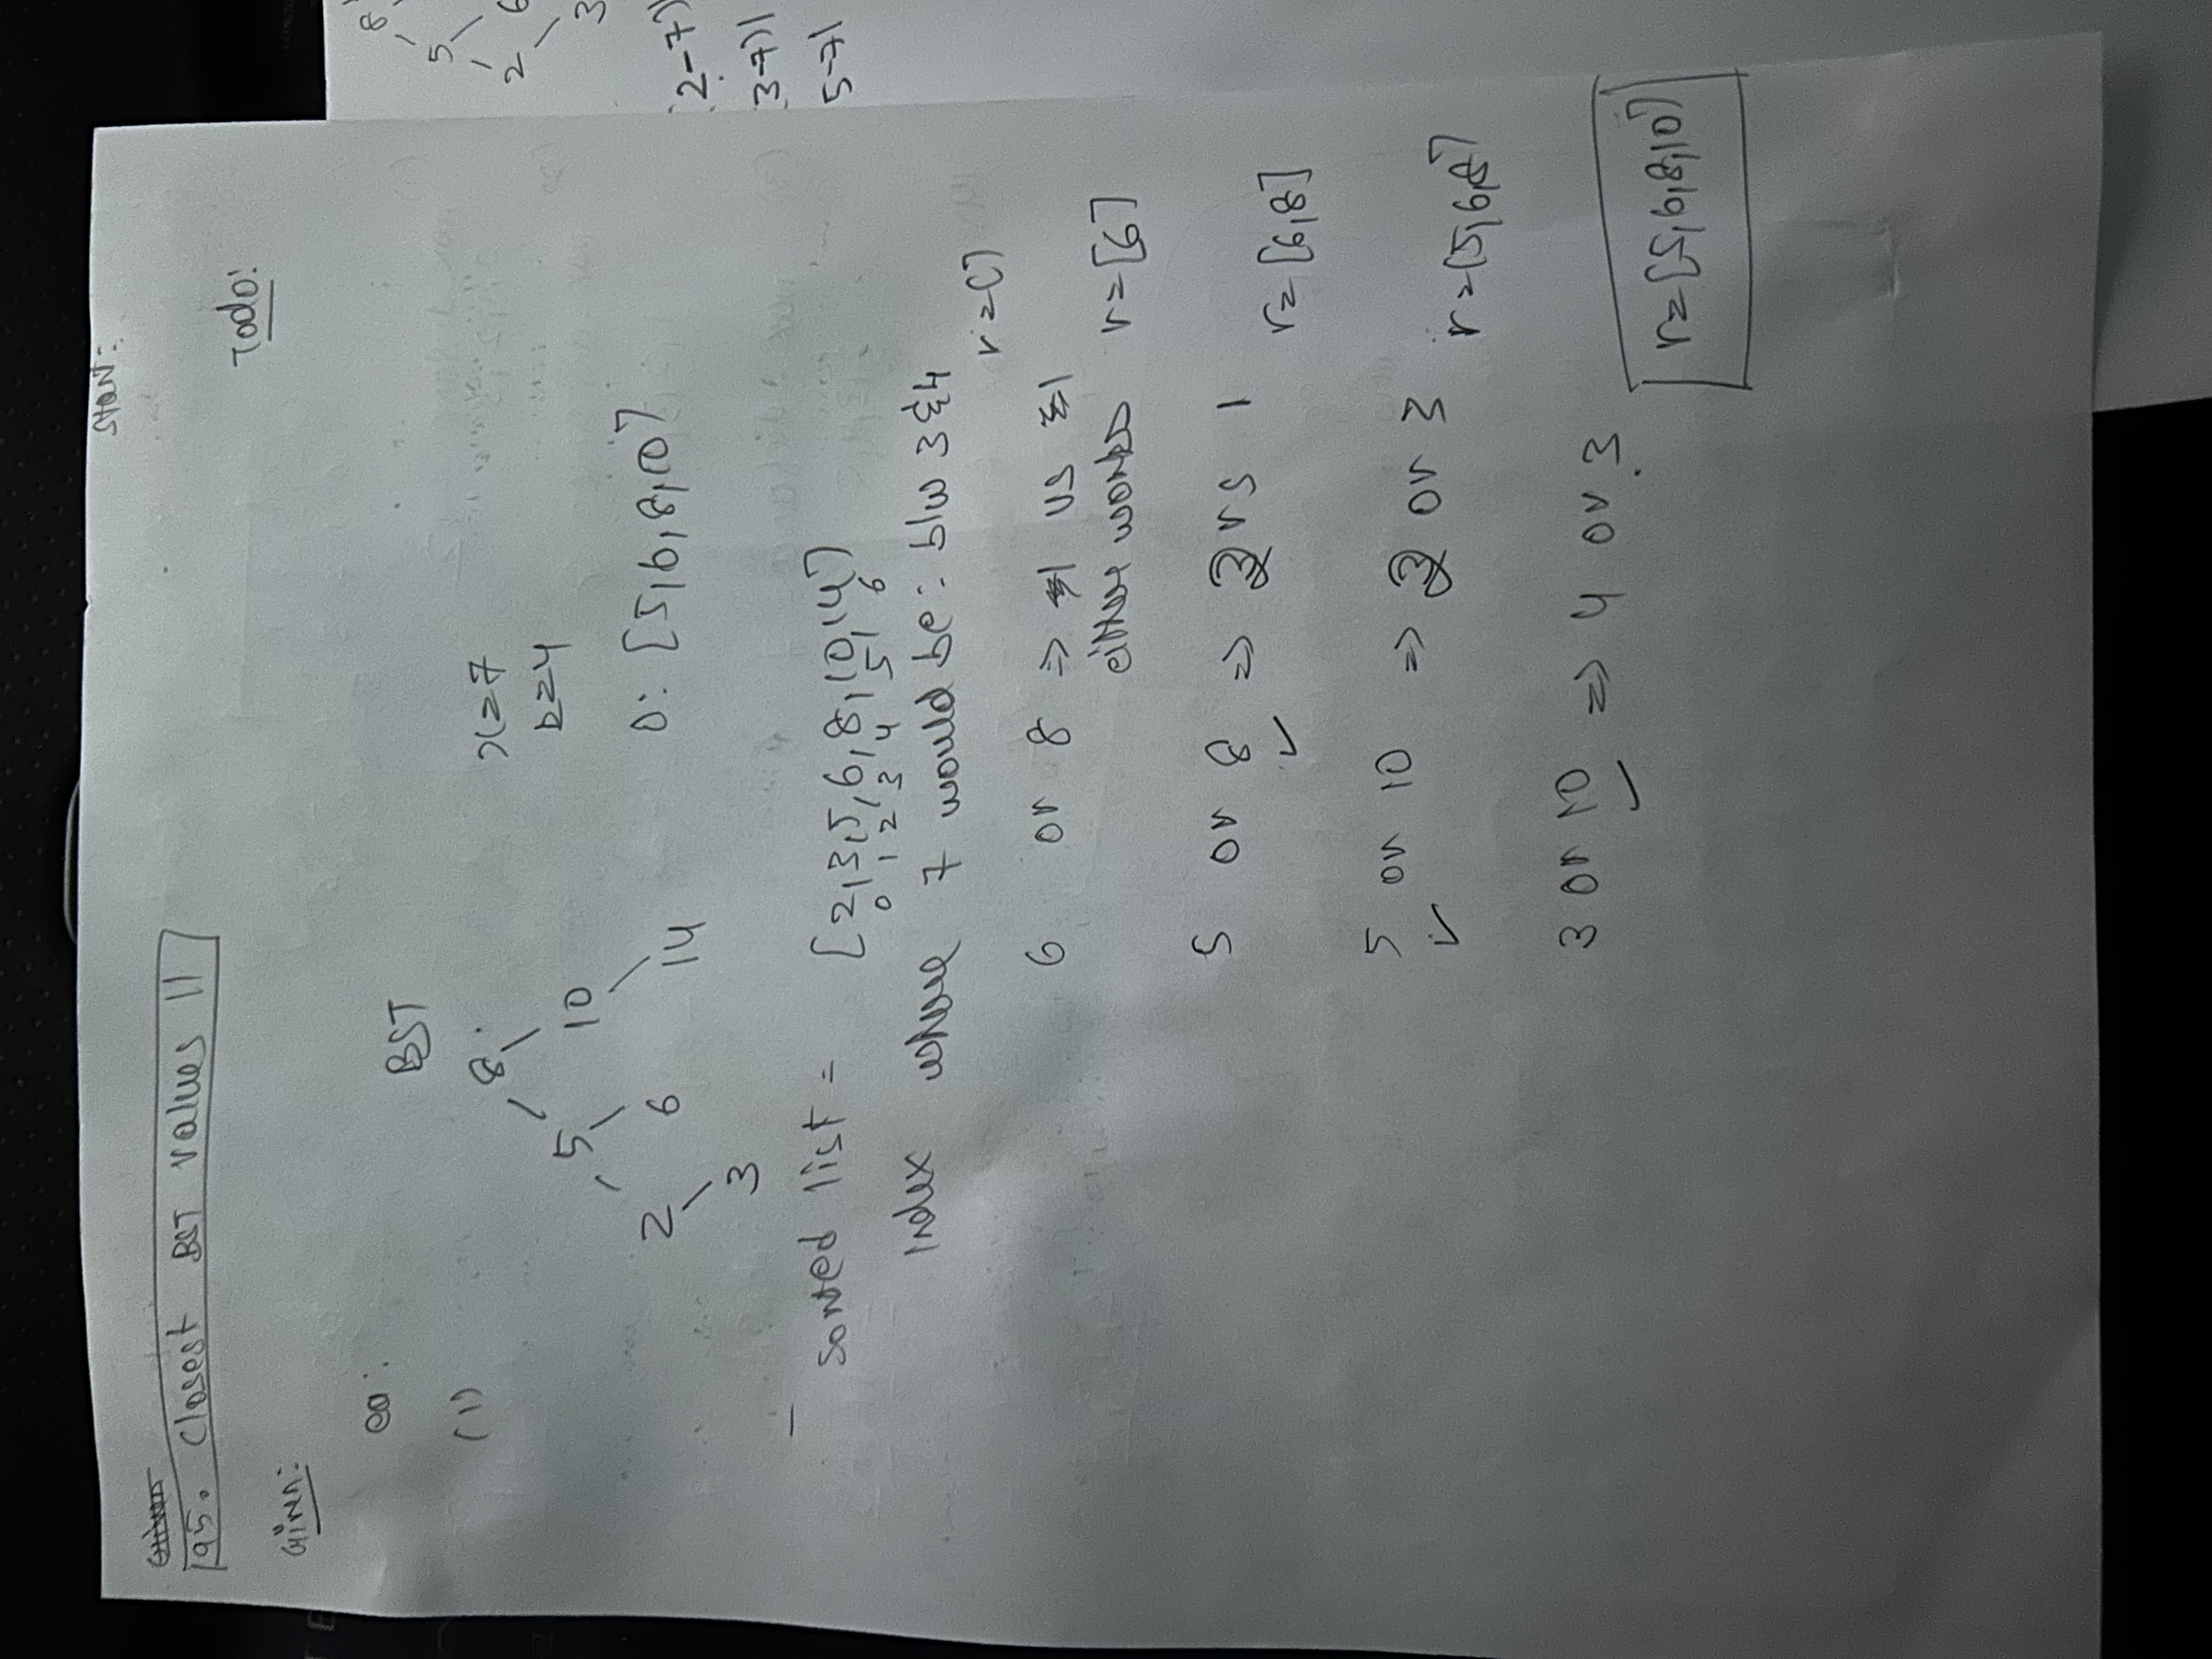 Start:
Given
195. Closest BST values II
Todo:
Given:
eg:
BST
(1)
8
5 10
2 6 14
3
x=7
k=4
O: [5,6,8,10]
sorted list = [2,3,5,6,8,10,14]
0 1 2 3 4 5 6
Index where 7 would be: b/w 3 & 4
r=[]
6 or 8 => 1 vs 1
either works r=[6]
5 or 8 => 2 vs 1
r=[6,8]
5 or 10 => 2 or 3
r=[5,6,8]
3 or 10 => 4 or 3
r=[5,6,8,10]
8
5
2 6
3
(2-7)|
(3-7)|
5-7|